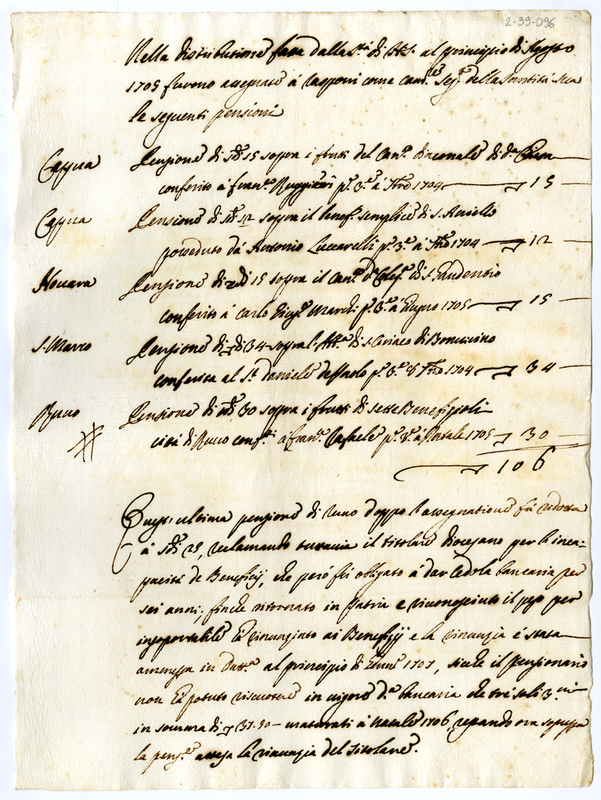 2-39-096
Nella distributione fatta dalla Stà di N.S. al principio di Agosto
1705 furono assegnate à Capponi come Camre Segto della Santità Sua
le seguenti pensioni
Capua Pensione di 15 sopra i frutti del Canto Diaconale di da
conferito à Franco Ruggieri pa 3a à 1704 15
Capua Pensione di 12 sopra il benefo semplice di S. Aniello
posseduto dà Antonio Luccarelli pa 3a à 1704 12
Novara Pensione di 15 sopra il Canto di S. Gaudentio
conferito à Carlo March pa 3a à Giugno 1705 15
S. Marco Pensione di 34 sopra di S. Ciriaco di Bonuicino
conferita al Sr Daniele pa 3a 1704 34
Ruvo Pensione di 30 sopra i frutti di sette Beneficj poli
citi di Ruvo confti à Franco Rafaele pa à Natale 1705 30
106
Quest'ultima pensione di Ruvo doppo l'assegnatione fù ridotta
à 25, reclamando tuttavia il titolare diocesano per l'inca
pacità de Beneficij, che però fù obligato à dar Cedola bancaria per
sei anni; finche ritornato in Patria e riconosciuto il peso per
insoportabile hà rinunziato ai Beneficij e la rinunzia è stata
ammessa in Datta al principio di 1707, siche il pensionario
non hà potuto riscuotere in vigore da bancaria che trè soli 3mi
in somma di 37.50 maturati à Natale 1706, restando ora soppressa
la pense attesa la rinunzia del Titolare.